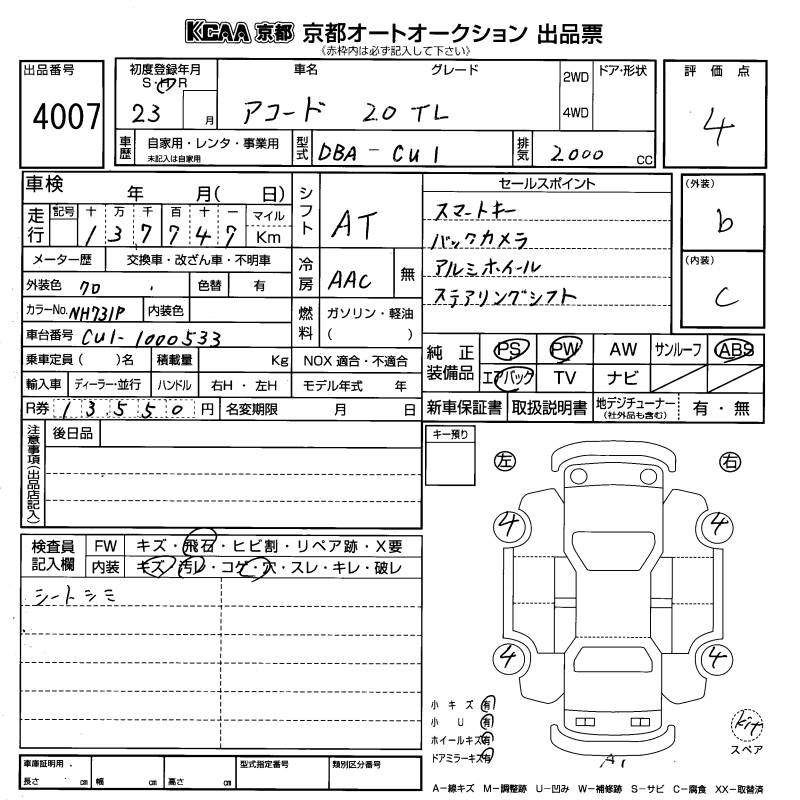 KCAA 京都 京都オートオークション 出品票
《赤枠内は必ず記入して下さい》
出品番号
4007
初度登録年月
S・H・R
23 月
車名 グレード
アコード 20TL
2WD
4WD
ドア・形状
評価点
4
車歴
自家用・レンタ・事業用
未記入は自家用
型式
DBA-CU1
排気
2000 CC
車検 年 月( 日)
走行
記号 十 万 千 百 十 一 マイル
1 3 7 7 4 7 Km
メーター歴 交換車・改ざん車・不明車
外装色 クロ 色替 有
カラーNo. NH731P 内装色
車台番号 CU1-1000533
乗車定員( )名 積載量 Kg
輸入車 ディーラー・並行 ハンドル 右H・左H
R券 13,550 円 名変期限 月 日
シフト AT
冷房 AAC 無
燃料 ガソリン・軽油
( )
NOX 適合・不適合
モデル年式 年
セールスポイント
スマートキー
バックカメラ
アルミホイール
ステアリングシフト
(外装)
b
(内装)
C
純正装備品
PS PW AW サンルーフ ABS
エアバック TV ナビ
新車保証書 取扱説明書 地デジチューナー(社外品も含む) 有・無
注意事項(出品店記入)
後日品
キー預り
左 右
4 4
4 4
検査員記入欄
FW キズ・飛石・ヒビ割・リペア跡・X要
内装 キズ・汚レ・コゲ・穴・スレ・キレ・破レ
シートシミ
小キズ 有
小U 有
ホイールキズ 有
ドアミラーキズ 有
A1
kit
スペア
車庫証明用.
長さ cm 幅 cm 高さ cm
型式指定番号
類別区分番号
A-線キズ M-調整跡 U-凹み W-補修跡 S-サビ C-腐食 XX-取替済